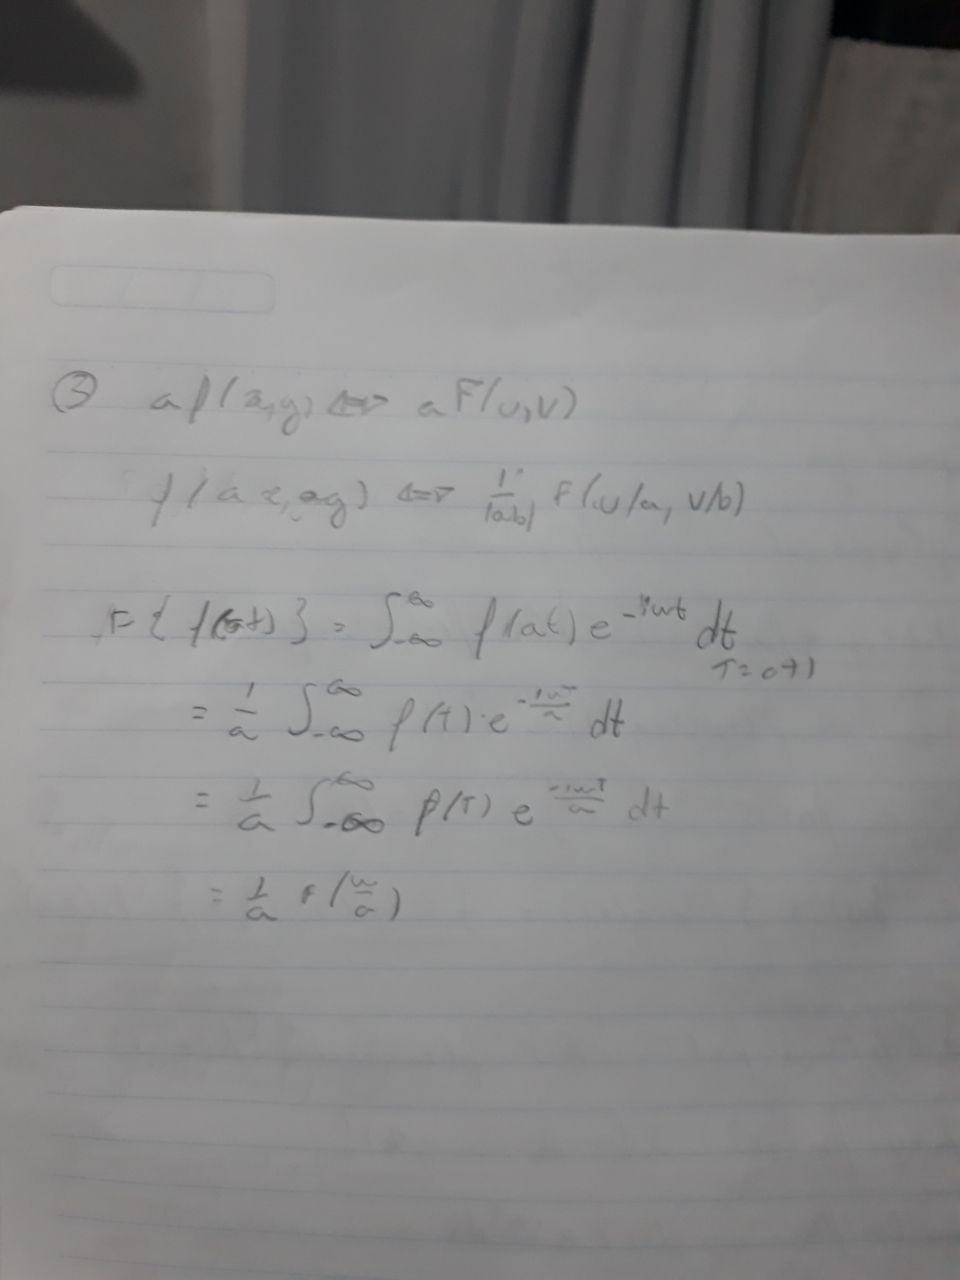 ③ a f(x,y) ⇔ a F(u,v)
f(ax,ay) ⇔ 1/|ab| F(u/a, v/b)
F{f(at)} = ∫_{-∞}^{∞} f(at) e^{-iwt} dt
= 1/a ∫_{-∞}^{∞} f(T)·e^{-iwT/a} dt
= 1/a ∫_{-∞}^{∞} f(T) e^{-iwT/a} dt
= 1/a F(w/a)